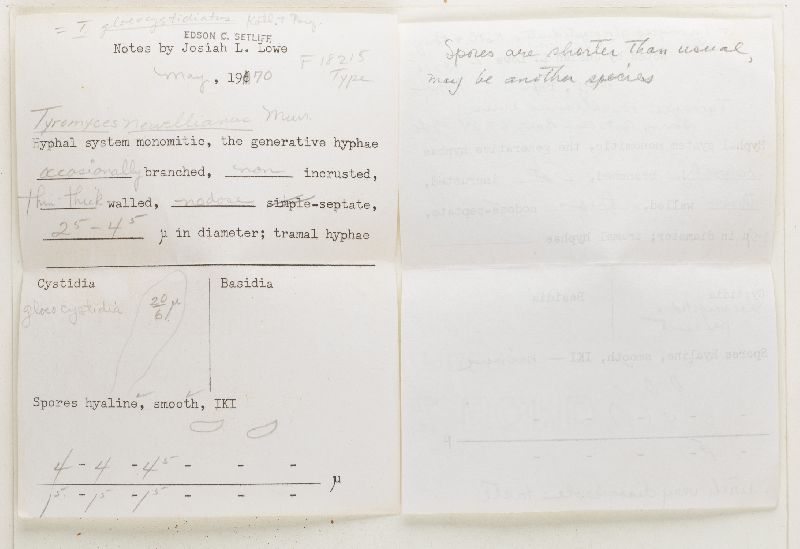 = T. gloeocystidiatus Kotl. + Pouz.
EDSON C. SETLIFF
Notes by Josiah L. Lowe
May, 1970
F 18215
Type
Tyromyces newellianus Murr.
Hyphal system monomitic, the generative hyphae
occasionally branched, non incrusted,
thin-thick walled, nodose simple-septate,
2⁵ - 4⁵ µ in diameter; tramal hyphae
Cystidia
Basidia
gloeocystidia
20/6 µ
Spores hyaline, smooth, IKI
4 - 4 - 4⁵ - - -
1⁵ - 1⁵ - 1⁵ - - - µ
Spores are shorter than usual,
may be another species